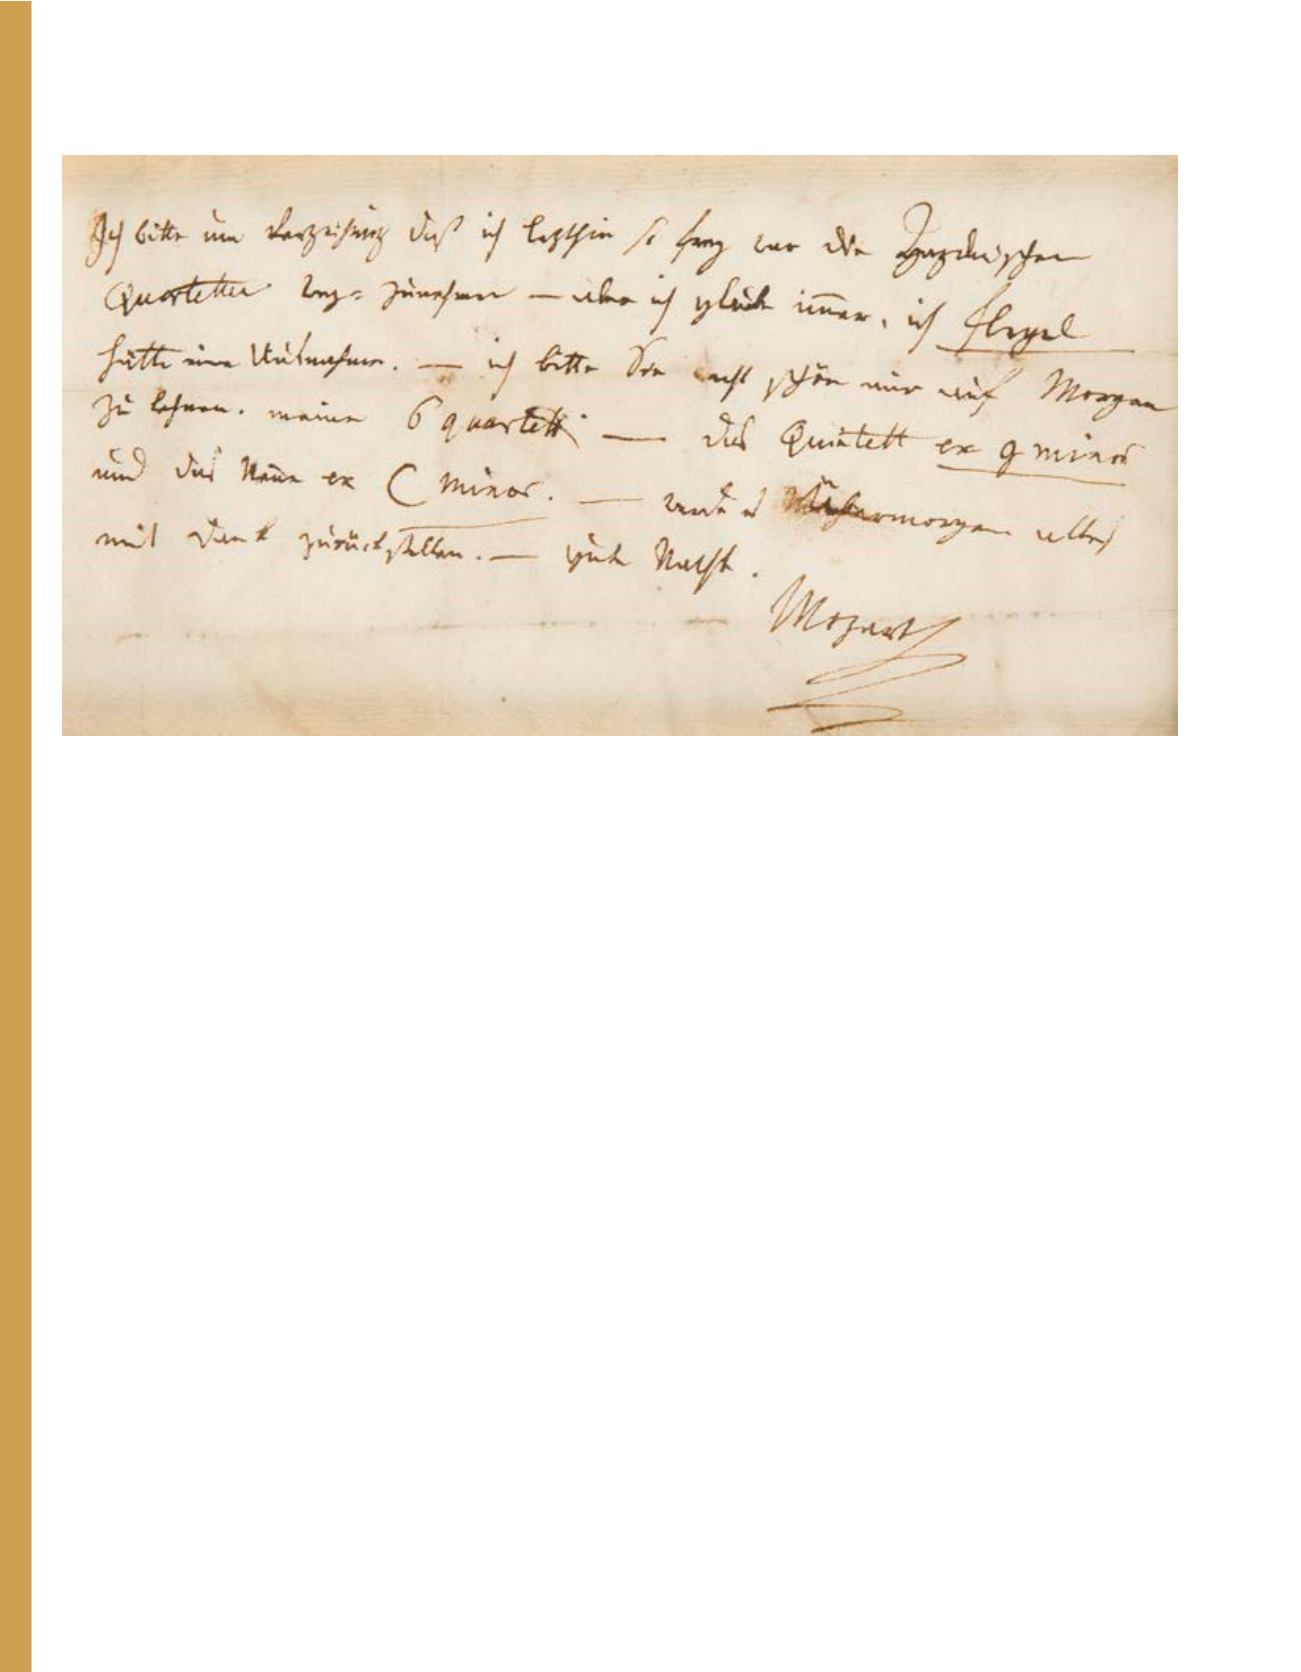 Ich bitte um Verzeihung daß ich letzthin so frey war die Haydnischen
Quartetten weg= zunehmen — aber ich glaubte immer, ich flegel
hätte eine Ausnahme. — ich bitte Sie recht schön mir auf Morgen
zu lehnen. meine 6 quartetti — das Quintett ex g minor
und das Neue ex C minor. — werde es Übermorgen alles
mit Dank zurückstellen. — gute Nacht.
Mozart